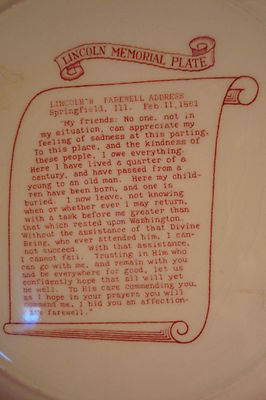 LINCOLN MEMORIAL PLATE
LINCOLN'S FAREWELL ADDRESS
Springfield, Ill. Feb.11,1861
"My friends: No one, not in
my situation, can appreciate my
feeling of sadness at this parting.
To this place, and the kindness of
these people, I owe everything.
Here I have lived a quarter of a
century, and have passed from a
young to an old man. Here my child-
ren have been born, and one is
buried. I now leave, not knowing
when or whether ever I may return,
with a task before me greater than
that which rested upon Washington.
Without the assistance of that Divine
Being, who ever attended him, I can-
not succeed. With that assistance,
I cannot fail. Trusting in Him who
can go with me, and remain with you
and be everywhere for good, let us
confidently hope that all will yet
be well. To His care commending you,
as I hope in your prayers you will
commend me, I bid you an affection-
ate farewell."